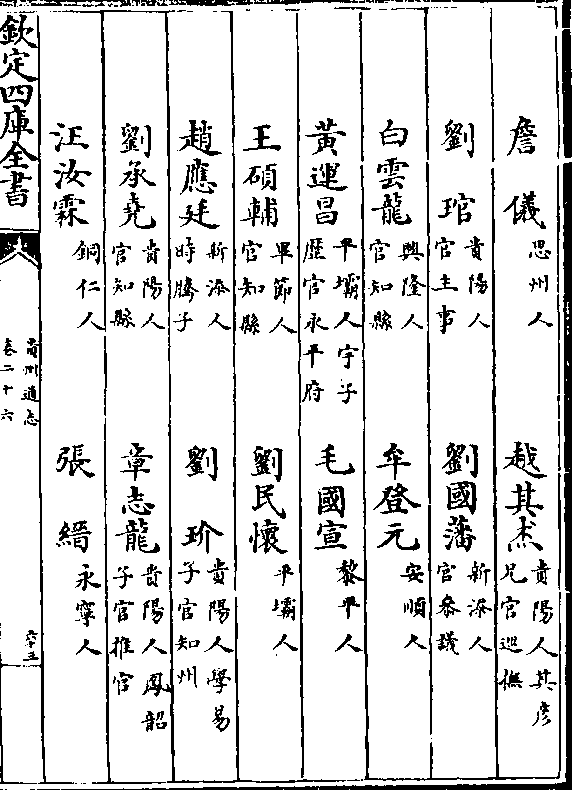 詹儀 思州人 越其杰 貴陽人其彥兄官巡撫
劉琯 貴陽人官主事 劉國藩 新添人官參議
白雲龍 興隆人官知縣 牟登元 安順人
黃運昌 平壩人宇子歷官永平府 毛國宣 黎平人
王碩輔 畢節人官知縣 劉民懷 平壩人
趙應廷 新添人時勝子 劉玠 貴陽人學易子官知州
劉承堯 貴陽人官知縣 章志龍 貴陽人鳳韶子官推官
汪汝霖 銅仁人 張縉 永寧人
欽定四庫全書
貴州通志
卷二十六
六十五